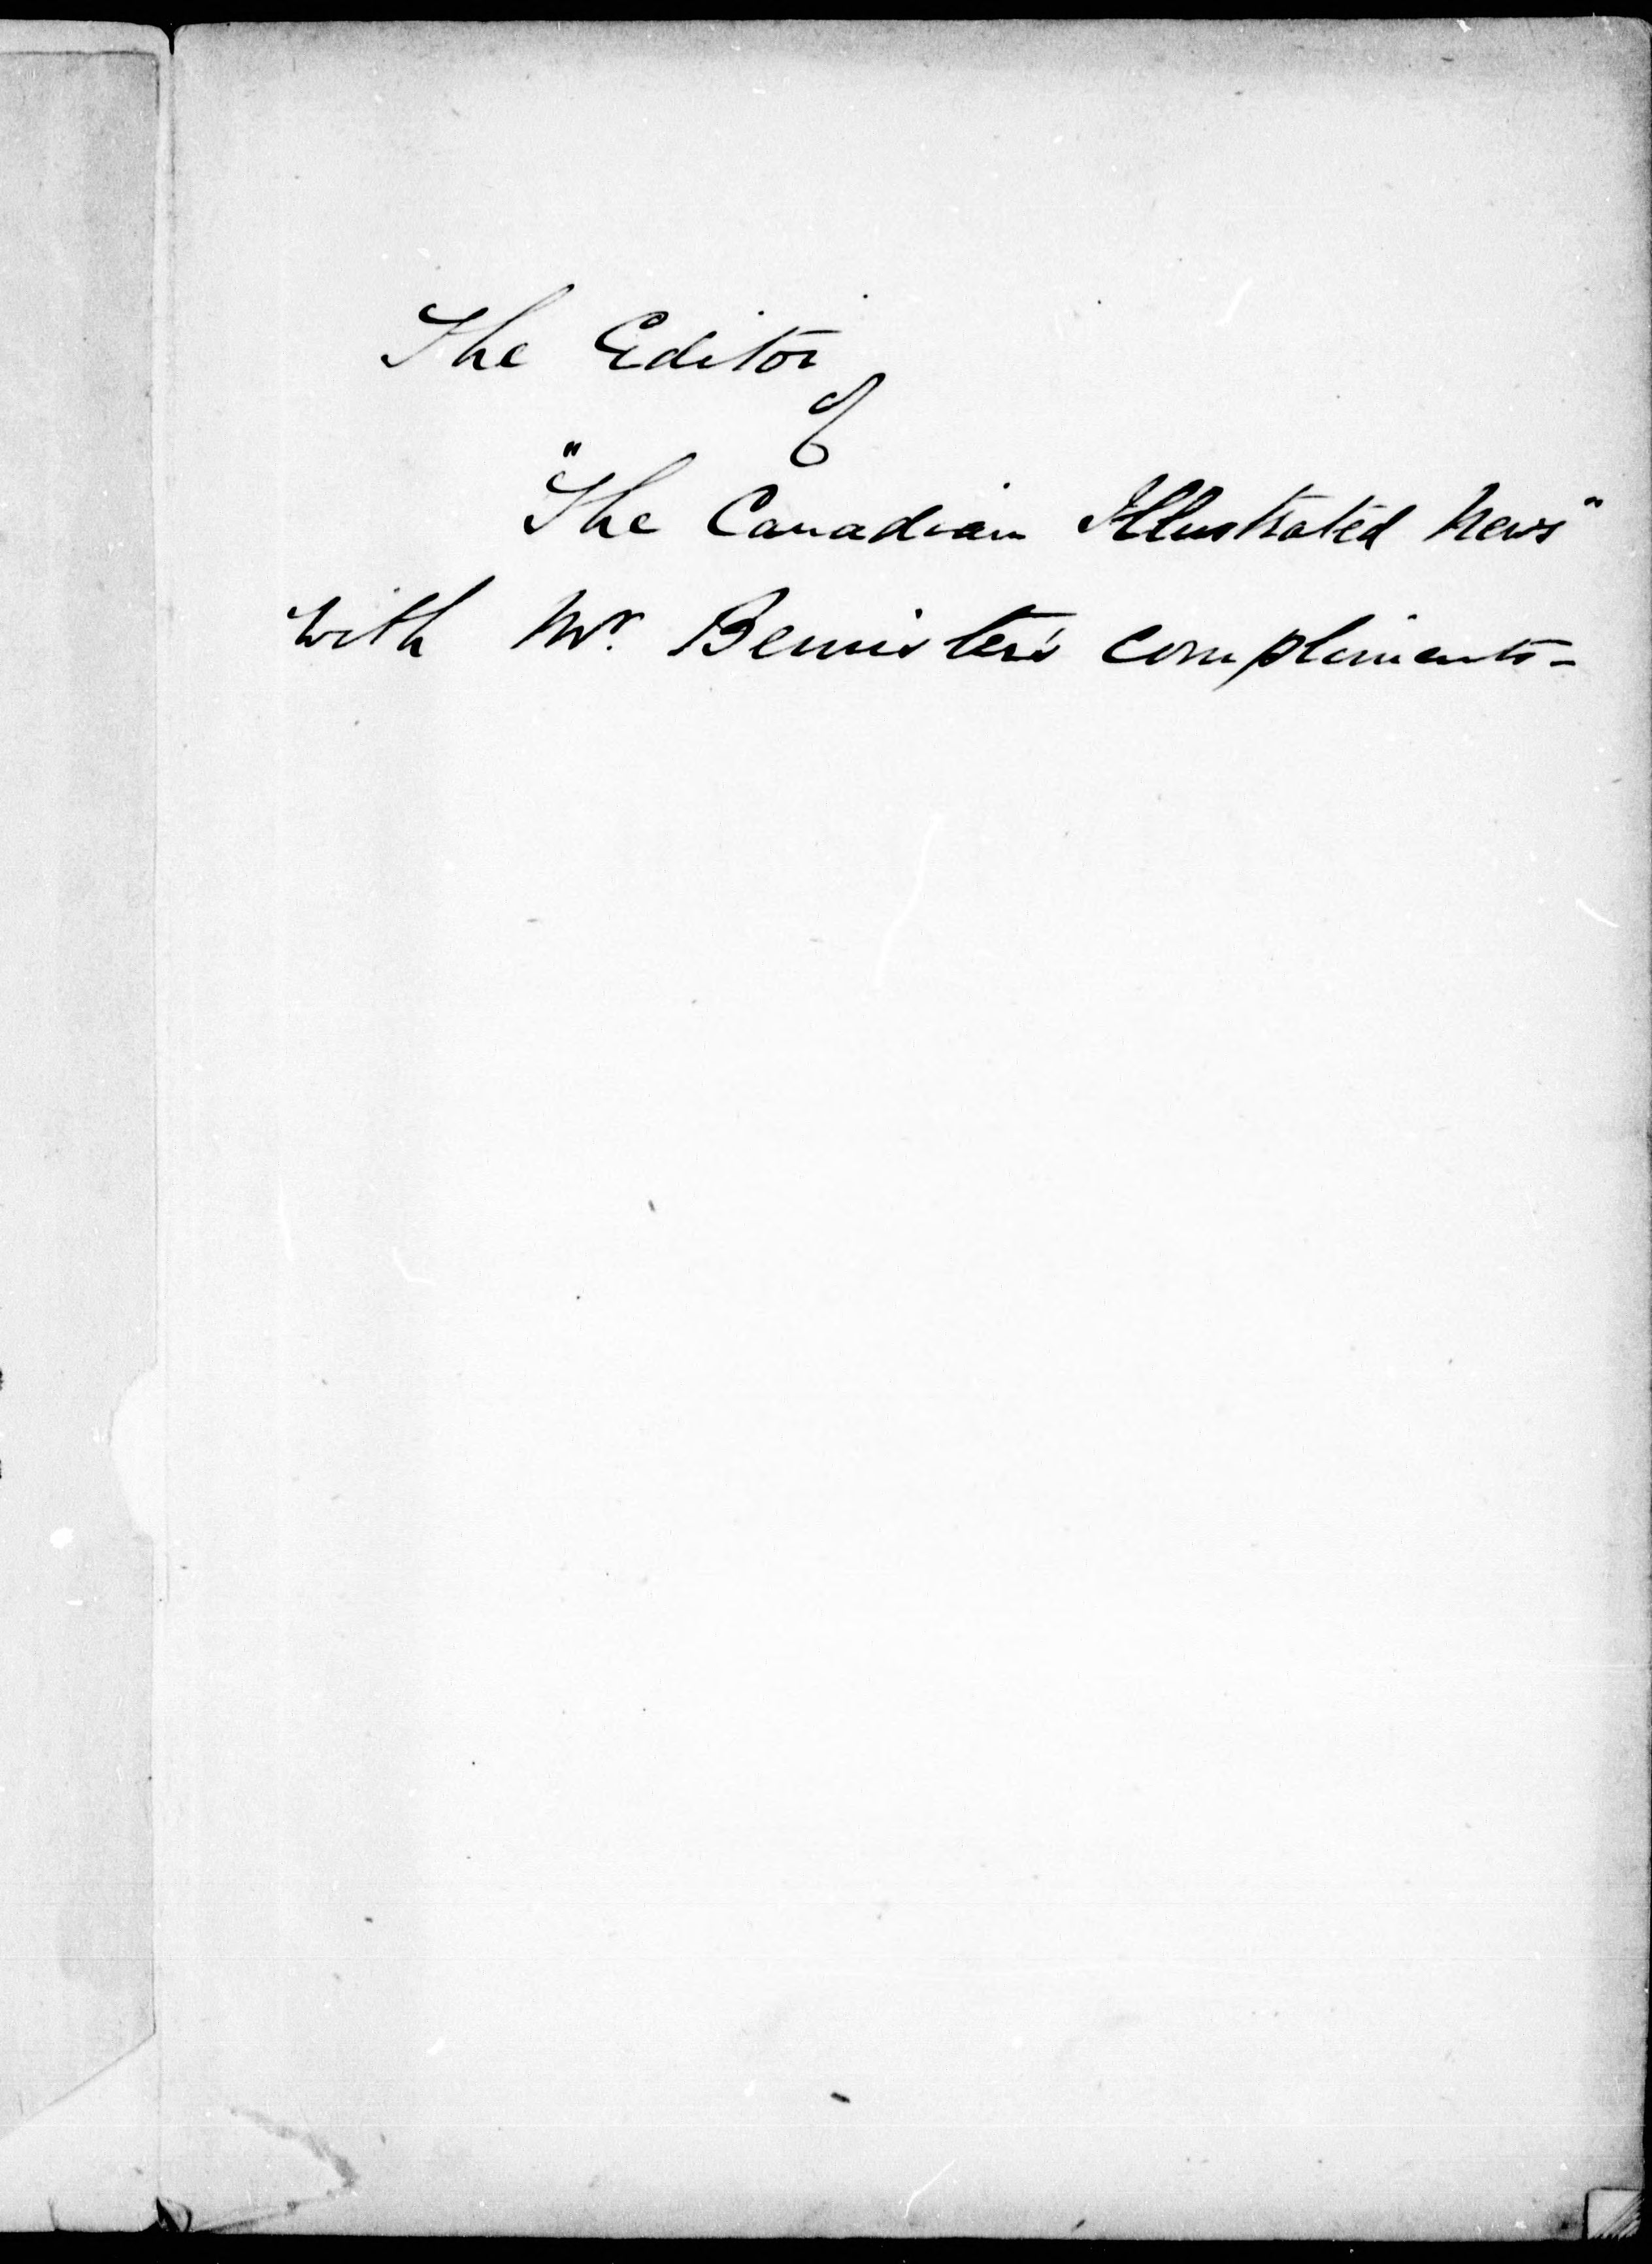 The Editor
of
"The Canadian Illustrated News"
with Mr. Bemister's compliments -